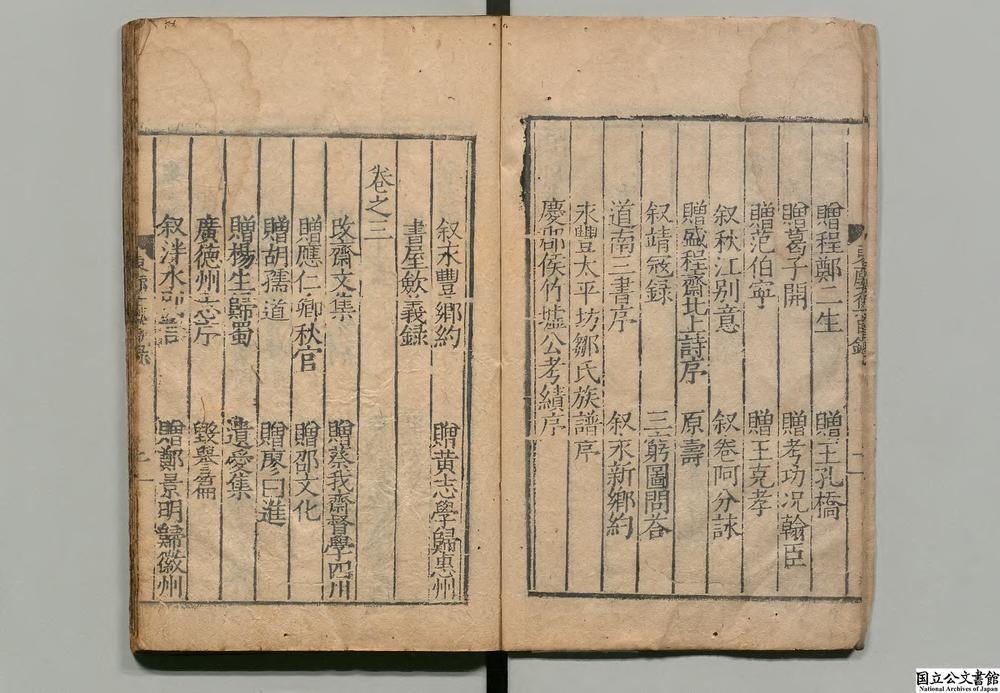 贈程鄭二生 贈王孔橋
贈葛子開 贈考功况翰臣
贈范伯寧 贈王克孝
叙秋江别意 叙卷阿分詠
贈盛程齋北上詩序 原壽
叙靖冦録 三窮圖問荅
道南三書序 叙永新鄉約
永豐太平坊鄒氏族譜序
慶郡侯竹墟公考績序
叙永豐鄉約 贈黄志學歸惠州
書屋歃義録
卷之三
攺齋文集 贈蔡我齋督學四川
贈應仁卿秋官 贈邵文化
贈胡孺道 贈廖曰進
贈楊生歸蜀 遺愛集
廣德州志序 毀譽篇
叙泮水 贈鄭景明歸徽州
国立公文書館
National Archives of Japan